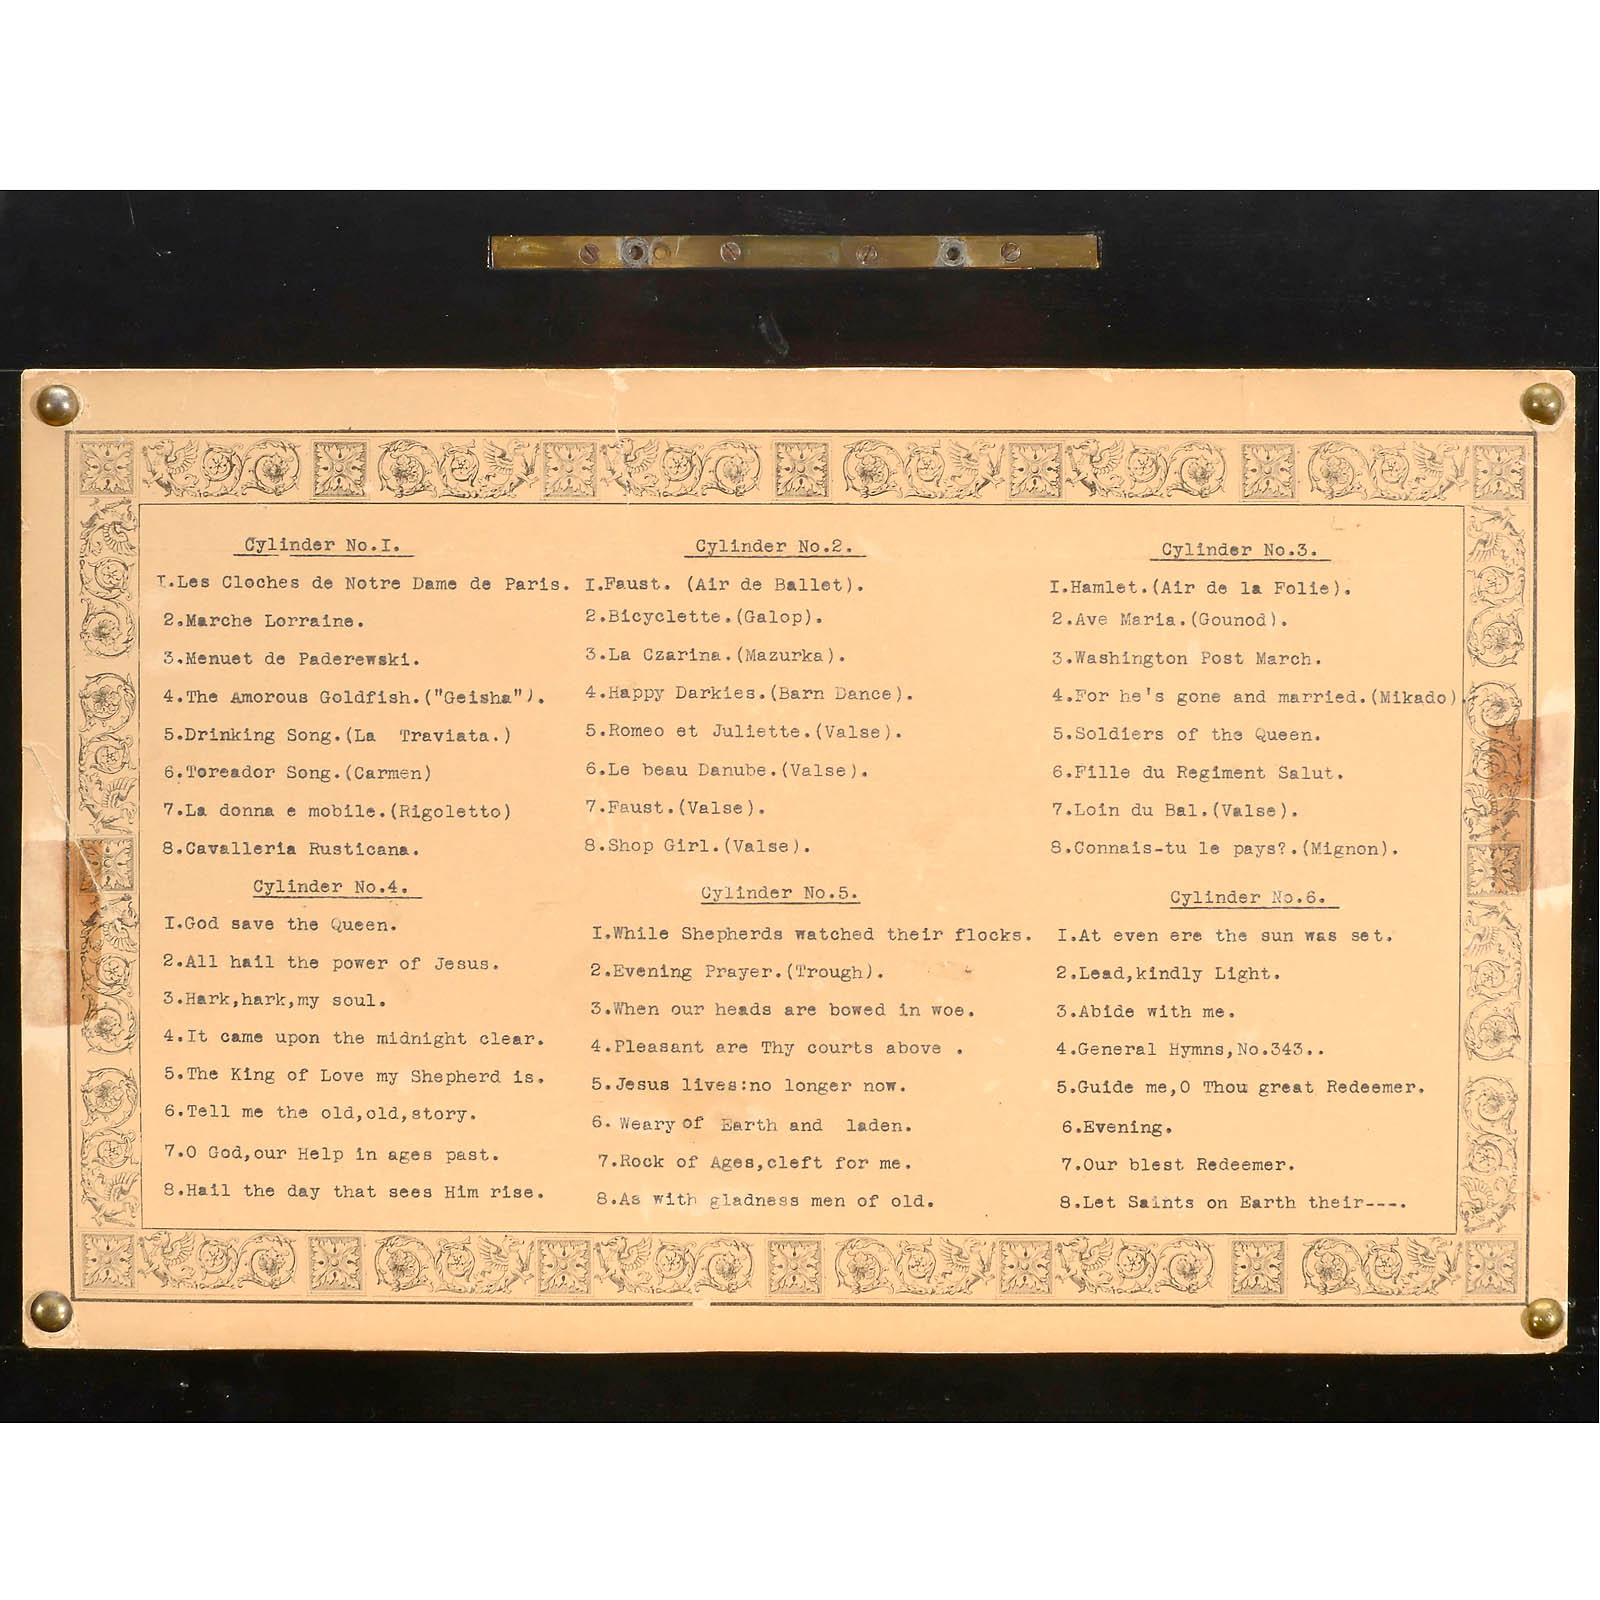 Cylinder No.I.
I.Les Cloches de Notre Dame de Paris.
2.Marche Lorraine.
3.Menuet de Paderewski.
4.The Amorous Goldfish.("Geisha").
5.Drinking Song.(La Traviata.)
6.Toreador Song.(Carmen)
7.La donna e mobile.(Rigoletto)
8.Cavalleria Rusticana.
Cylinder No.2.
I.Faust. (Air de Ballet).
2.Bicyclette.(Galop).
3.La Czarina.(Mazurka).
4.Happy Darkies.(Barn Dance).
5.Romeo et Juliette.(Valse).
6.Le beau Danube.(Valse).
7.Faust.(Valse).
8.Shop Girl.(Valse).
Cylinder No.3.
I.Hamlet.(Air de la Folie).
2.Ave Maria.(Gounod).
3.Washington Post March.
4.For he's gone and married.(Mikado).
5.Soldiers of the Queen.
6.Fille du Regiment Salut.
7.Loin du Bal.(Valse).
8.Connais-tu le pays?.(Mignon).
Cylinder No.4.
I.God save the Queen.
2.All hail the power of Jesus.
3.Hark,hark,my soul.
4.It came upon the midnight clear.
5.The King of Love my Shepherd is.
6.Tell me the old,old,story.
7.O God,our Help in ages past.
8.Hail the day that sees Him rise.
Cylinder No.5.
I.While Shepherds watched their flocks.
2.Evening Prayer.(Trough).
3.When our heads are bowed in woe.
4.Pleasant are Thy courts above .
5.Jesus lives:no longer now.
6. Weary of Earth and laden.
7.Rock of Ages,cleft for me.
8.As with gladness men of old.
Cylinder No.6.
I.At even ere the sun was set.
2.Lead,kindly Light.
3.Abide with me.
4.General Hymns,No.343..
5.Guide me,O Thou great Redeemer.
6.Evening.
7.Our blest Redeemer.
8.Let Saints on Earth their----.